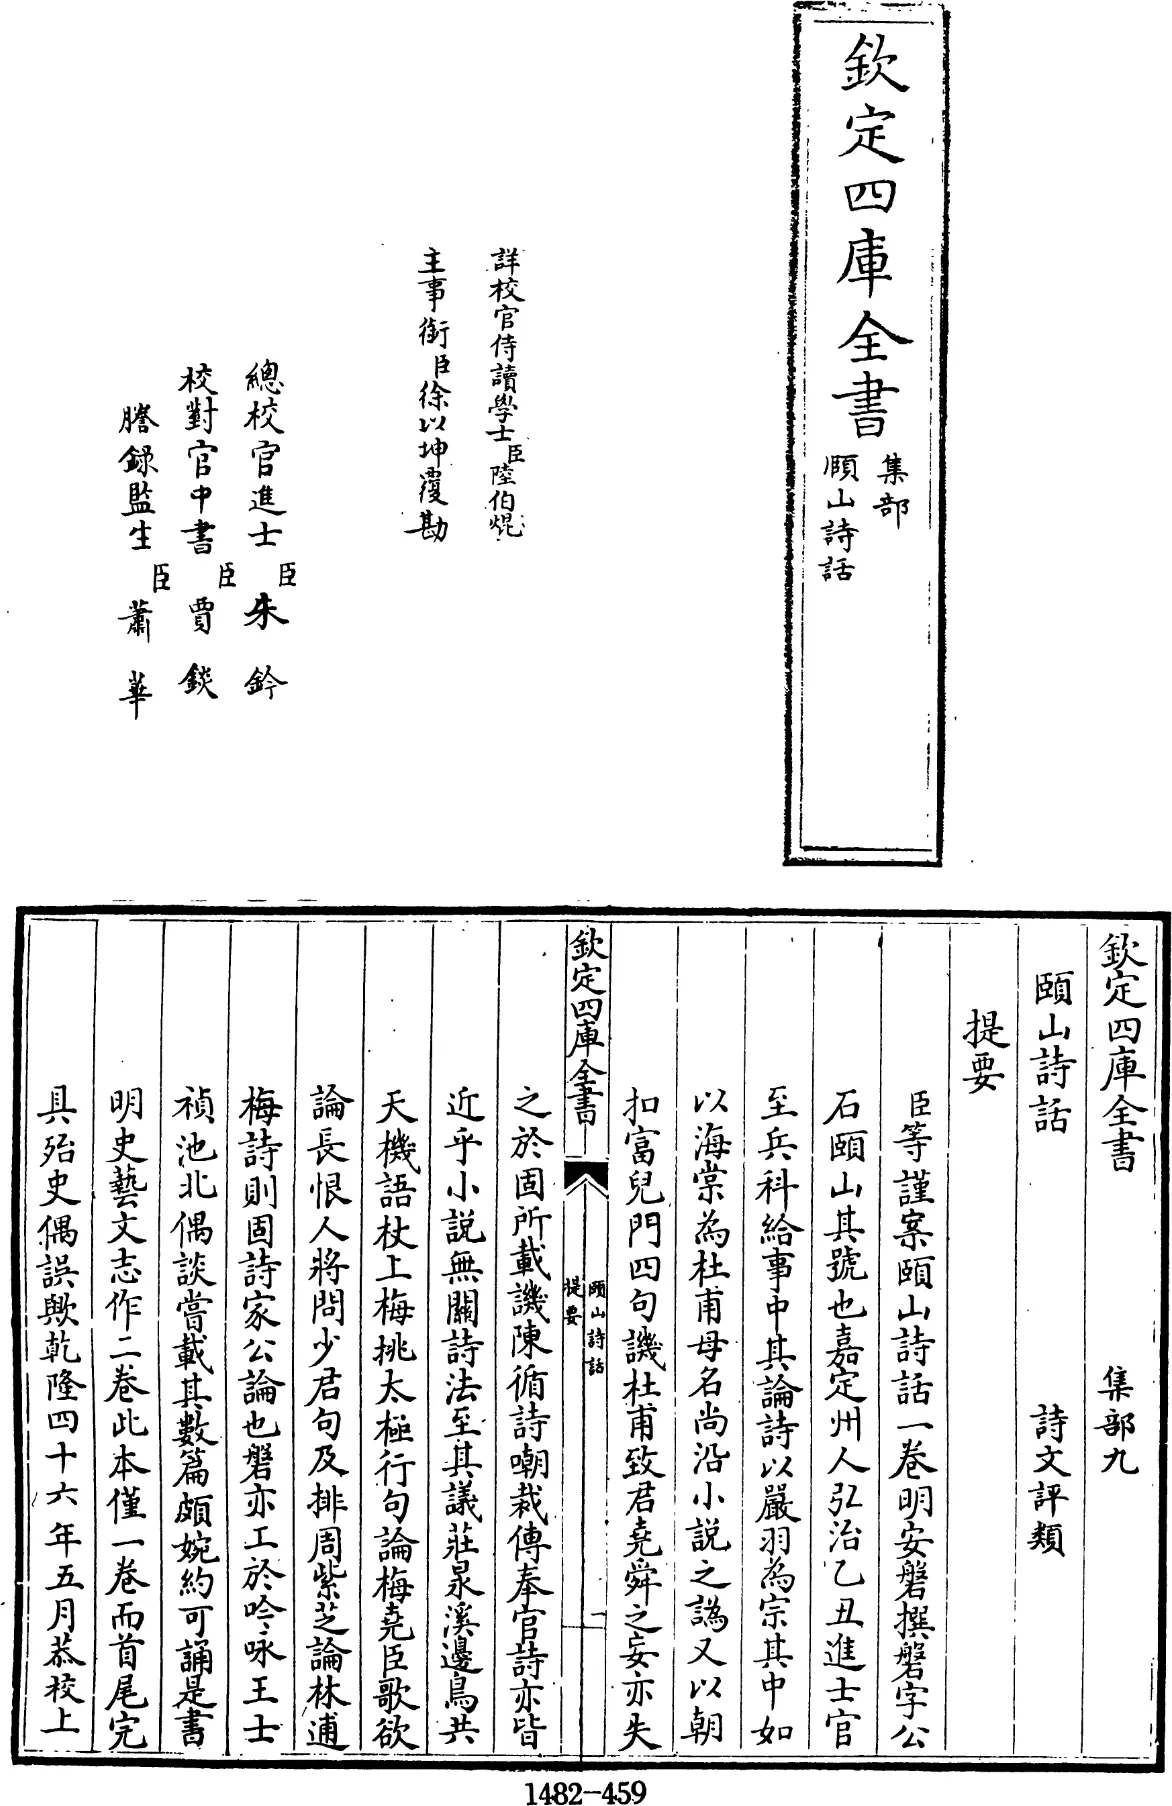 欽定四庫全書
集部
頤山詩話
詳校官侍讀學士臣陸伯焜
主事銜臣徐以坤覆勘
總校官進士臣朱鈐
校對官中書臣賈錟
謄録監生臣蕭華
欽定四庫全書 集部九
頤山詩話 詩文評類
提要
臣等謹案頤山詩話一卷明安磐撰磐字公
石頤山其號也嘉定州人弘治乙丑進士官
至兵科給事中其論詩以嚴羽為宗其中如
以海棠為杜甫母名尚沿小説之譌又以朝
扣富兒門四句譏杜甫致君堯舜之妄亦失
欽定四庫全書
頤山詩話
提要
一
之於固所載譏陳循詩嘲裁傳奉官詩亦皆
近乎小說無關詩法至其議莊泉溪邊鳥共
天機語杖上梅挑太極行句論梅堯臣歌欲
論長恨人將問少君句及排周紫芝論林逋
梅詩則固詩家公論也磐亦工於吟咏王士
禎池北偶談嘗載其數篇頗婉約可誦是書
明史藝文志作二卷此本僅一卷而首尾完
具殆史偶誤歟乾隆四十六年五月恭校上
1482-459